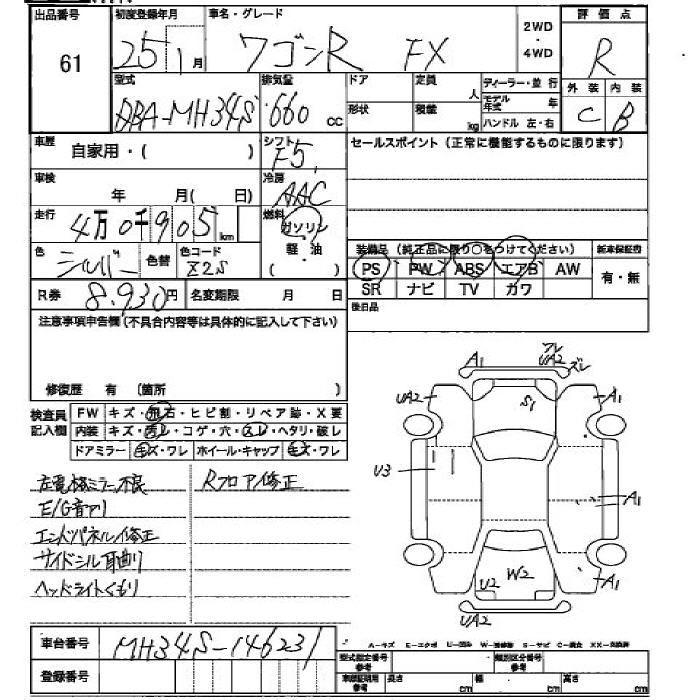 出品番号 初度登録年月 車名・グレード 2WD ・ 4WD 評価点
61 25 1月 ワゴンR FX R
型式 排気量 ドア 定員 人 ディーラー・並行 外装 内装
DBA-MH34S 660 cc 形状 積載 kg モデル年式 年 C B
ハンドル 左・右
車歴 自家用・( ) シフト F5 セールスポイント(正常に機能するものに限ります)
車検 年 月(日) 冷房 AAC
走行 4万0千905km 燃料 ガソリン
色 シルバー 色替 色コード Z2S 軽・油 ( )
装備品(純正品に限り○をつけてください) 新車保証書
PS PW ABS エアB AW 有・無
SR ナビ TV カワ
R券 8.930円 名変期限 月 日 後日品
注意事項申告欄(不具合内容等は具体的に記入して下さい)
修復歴 有 (箇所 )
検査員記入欄
FW キズ・飛石・ヒビ割・リペア跡・X要
内装 キズ・汚レ・コゲ・穴・スレ・ヘタリ・破レ
ドアミラー キズ・ワレ ホイール・キャップ キズ・ワレ
左電格ミラー不良 Rフロア修正
E/G音アリ
エンドパネル修正
サイドシル耳曲り
ヘッドライトくもり
A1 フレ UA2 ズレ
UA2 S1 A1
U3 A1
U2 W2 A1
UA2
車台番号 MH34S-146231
登録番号
A-キズ E-エクボ U-凹み W-補修跡 S-サビ C-腐食 XX-交換済
型式指定番号 参考 類別区分番号 参考
車庫証明用 参考 長さ cm 幅 cm 高さ cm